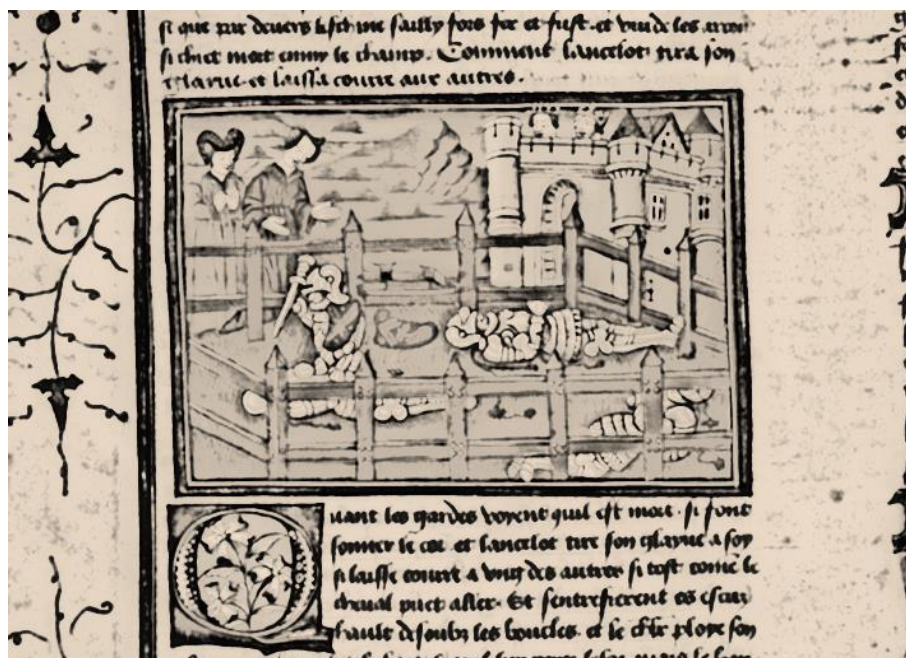 si que par devers lesch ine sailly fors fer et fust. et vuide les arcon
si chiet mort enmy le champ. Comment lancelot tira son
glaiue et laissa courre aux autres.
Quant les gardes voyent quil est mort. si font
sonner le cor. et lancelot tire son glayue a soy
si laisse courre a vng des autres si tost come le
cheual puet aller. Et sentrefierent es escuz
hault desoubz les boucles. et le chlr ploye son